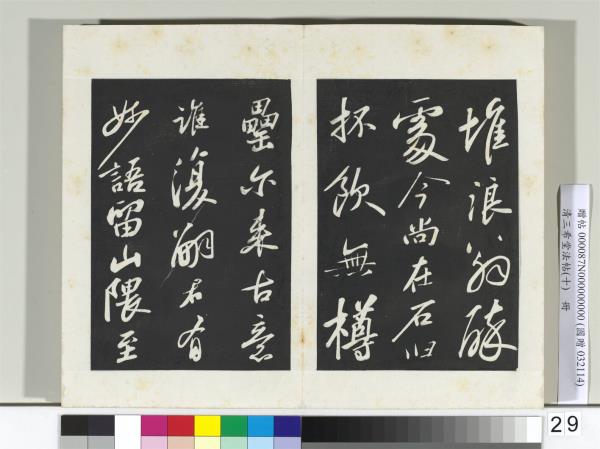 堆浪翁醉
處今尚在石臼
抔飲無樽
罍尒来古意
誰復嗣君有
妙語留山隈至
贈帖 000087N000000000 (國贈 032114)
清三希堂法帖(十) 冊
29